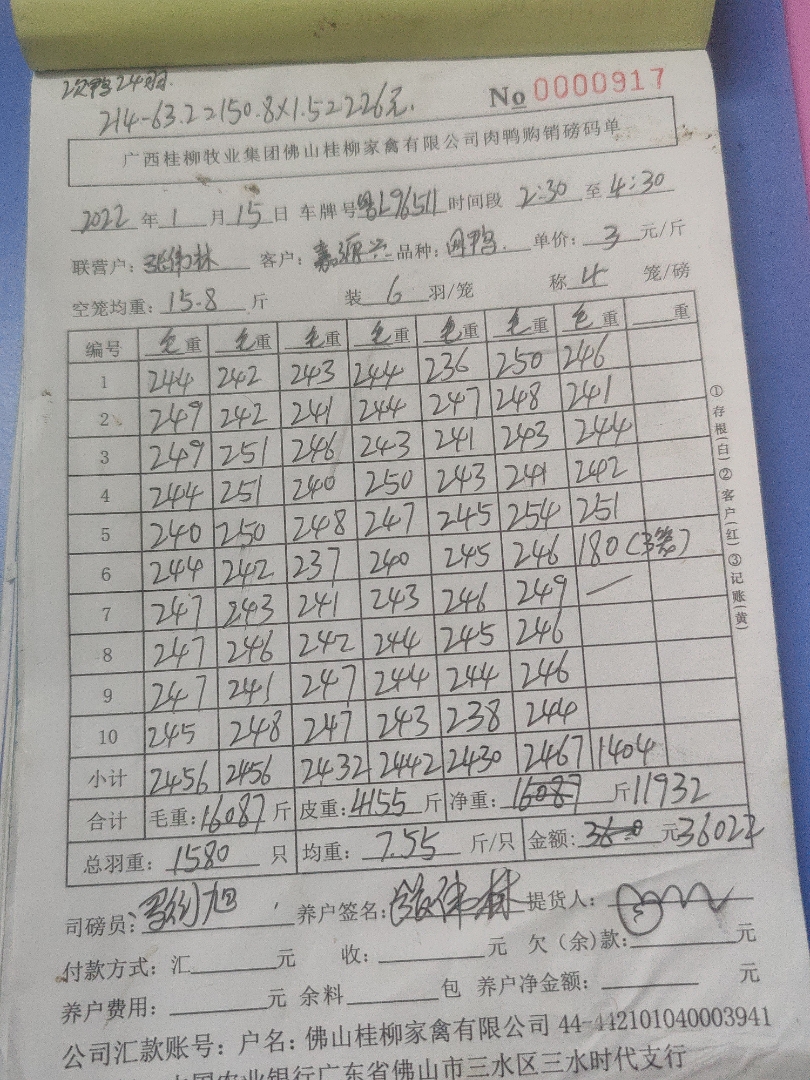 次鸭24羽.
214-63.2=150.8×1.5=226元.
No 0000917
广西桂柳牧业集团佛山桂柳家禽有限公司肉鸭购销磅码单
2022年1月15日 车牌号 粤L96511 时间段 2:30 至 4:30
联营户: 张伟林 客户: 嘉源兴 品种: 肉鸭. 单价: 3 元/斤
空笼均重: 15.8 斤 装 6 羽/笼 称 4 笼/磅
编号 毛重 毛重 毛重 毛重 毛重 毛重 毛重 重
1 244 242 243 244 236 250 246
2 249 242 241 244 247 248 241
3 249 251 246 243 241 243 244
4 244 251 240 250 243 241 242
5 240 250 248 247 245 254 251
6 244 242 237 240 245 246 180(3笼)
7 247 243 241 243 246 249 —
8 247 246 242 244 245 246
9 247 241 247 244 244 246
10 245 248 247 243 238 244
小计 2456 2456 2432 2442 2430 2467 1404
合计 毛重: 16087 斤 皮重: 4155 斤 净重: 16087 斤 11932
总羽重: 1580 只 均重: 7.55 斤/只 金额: 元 36022
司磅员: 养户签名: 张伟林 提货人:
付款方式: 汇 元 收: 元 欠(余)款: 元
养户费用: 元 余料 包 养户净金额: 元
公司汇款账号: 户名: 佛山桂柳家禽有限公司 44-442101040003941
中国农业银行广东省佛山市三水区三水时代支行
①存根(白)②客户(红)③记账(黄)